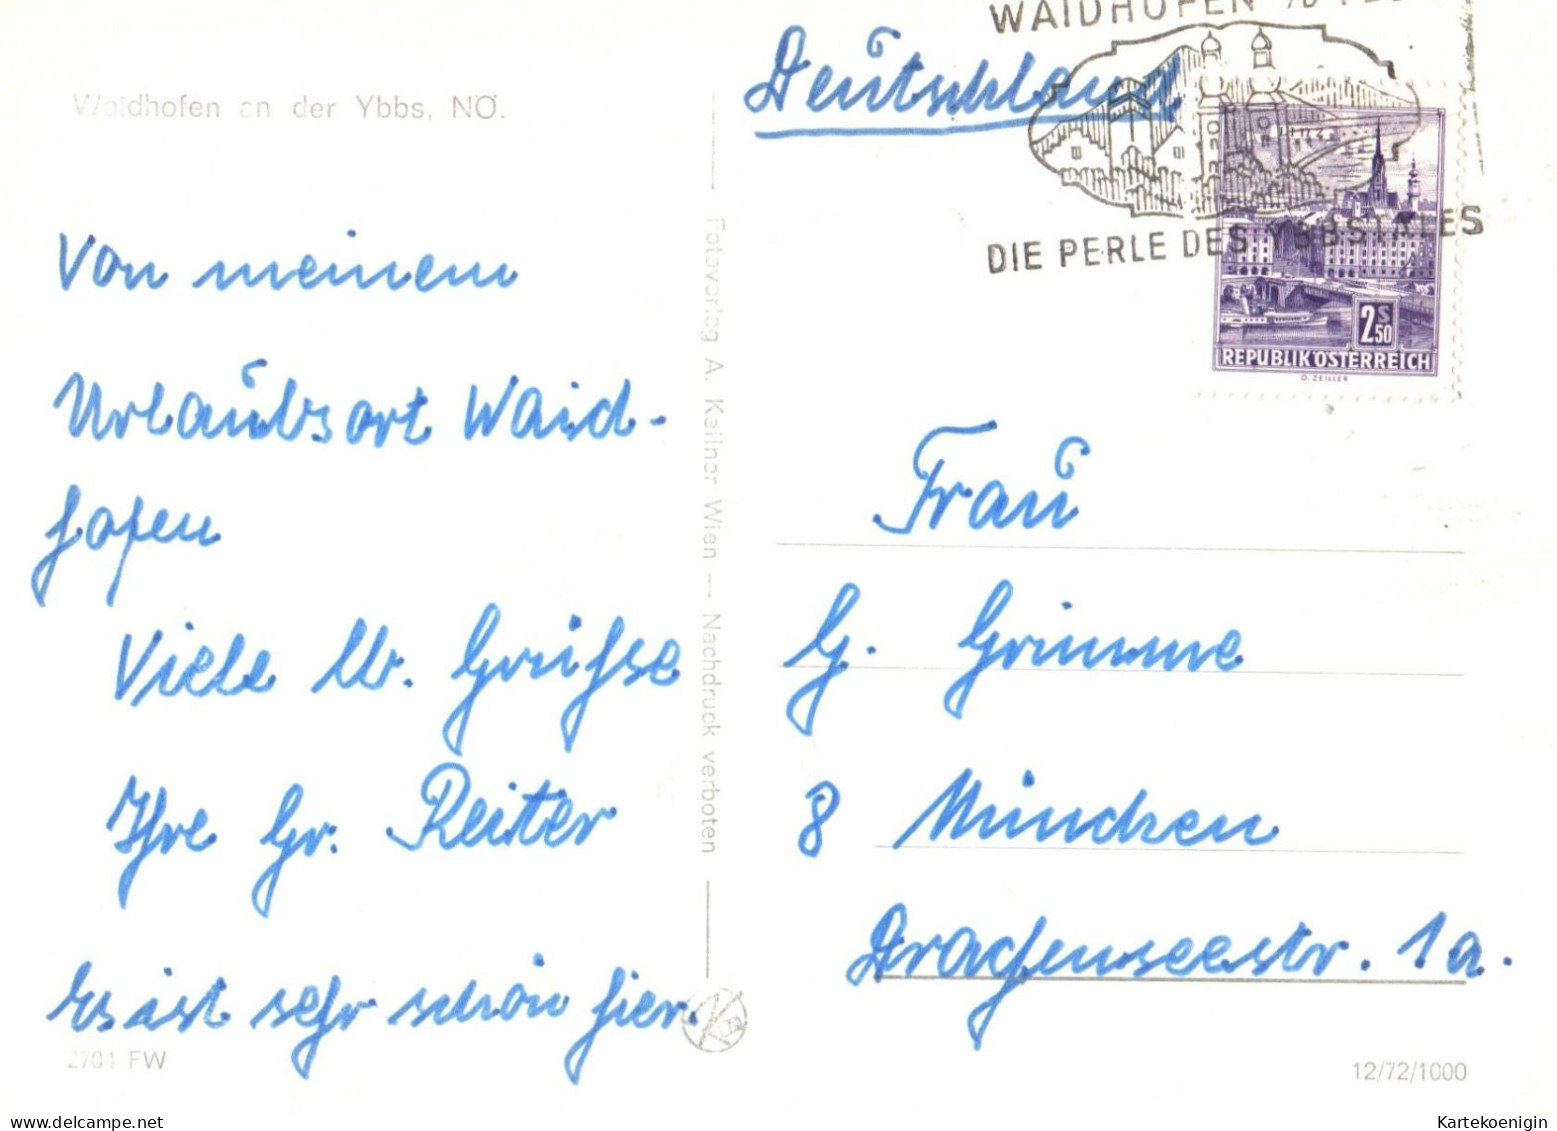 Waidhofen an der Ybbs, NÖ.
Von meinem
Urlaubsort Waid-
hofen
Viele lb. Grühse
Ihre Gr. Reiter
Es ist sehr schön hier.
2701 FW
Fotoverlag A. Kellner Wien — Nachdruck verboten
Deutschland
WAIDHOFEN
DIE PERLE DES YBBSTALES
2S50
REPUBLIK ÖSTERREICH
O. ZEILLER
Frau
G. Grimme
8 München
Drachenseestr. 1a.
12/72/1000
delcampe.net
Kartekoenigin